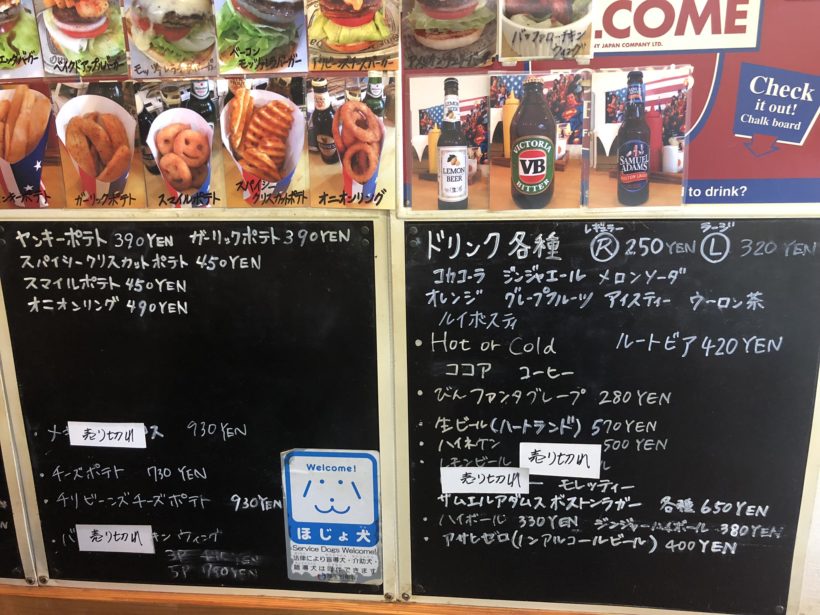 ベーコン
モッツァレラバーガー
バッファローチキン
ウィング
COME
NY JAPAN COMPANY LTD.
Check
it out!
Chalk board
to drink?
ガーリックポテト
スマイルポテト
スパイシー
クリスカットポテト
オニオンリング
LEMON
BEER
LEMON
BEER
VICTORIA
VB
BITTER
SAMUEL
ADAMS
ヤンキーポテト 390YEN ガーリックポテト 390YEN
スパイシークリスカットポテト 450YEN
スマイルポテト 450YEN
オニオンリング 490YEN
・メキ 売り切れ ス 930YEN
・チーズポテト 730YEN
・チリビーンズチーズポテト 930YEN
・バ 売り切れ キンウィング
5P 790YEN
Welcome!
ほじょ犬
Service Dogs Welcome!
法律により盲導犬・介助犬・
聴導犬は同伴できます
ドリンク各種 レギュラー Ⓡ 250YEN ラージ Ⓛ 320YEN
コカコーラ ジンジャエール メロンソーダ
オレンジ グレープフルーツ アイスティー ウーロン茶
ルイボスティ
・Hot or Cold ルートビア 420YEN
ココア コーヒー
・びんファンタグレープ 280YEN
・生ビール(ハートランド) 570YEN
・ハイネケン 売り切れ 500YEN
・レモンビール
売り切れ ー モレッティー
サムエルアダムスボストンラガー 各種 650YEN
・ハイボール 330YEN ジンジャーハイボール 380YEN
・アサヒゼロ(ノンアルコールビール) 400YEN